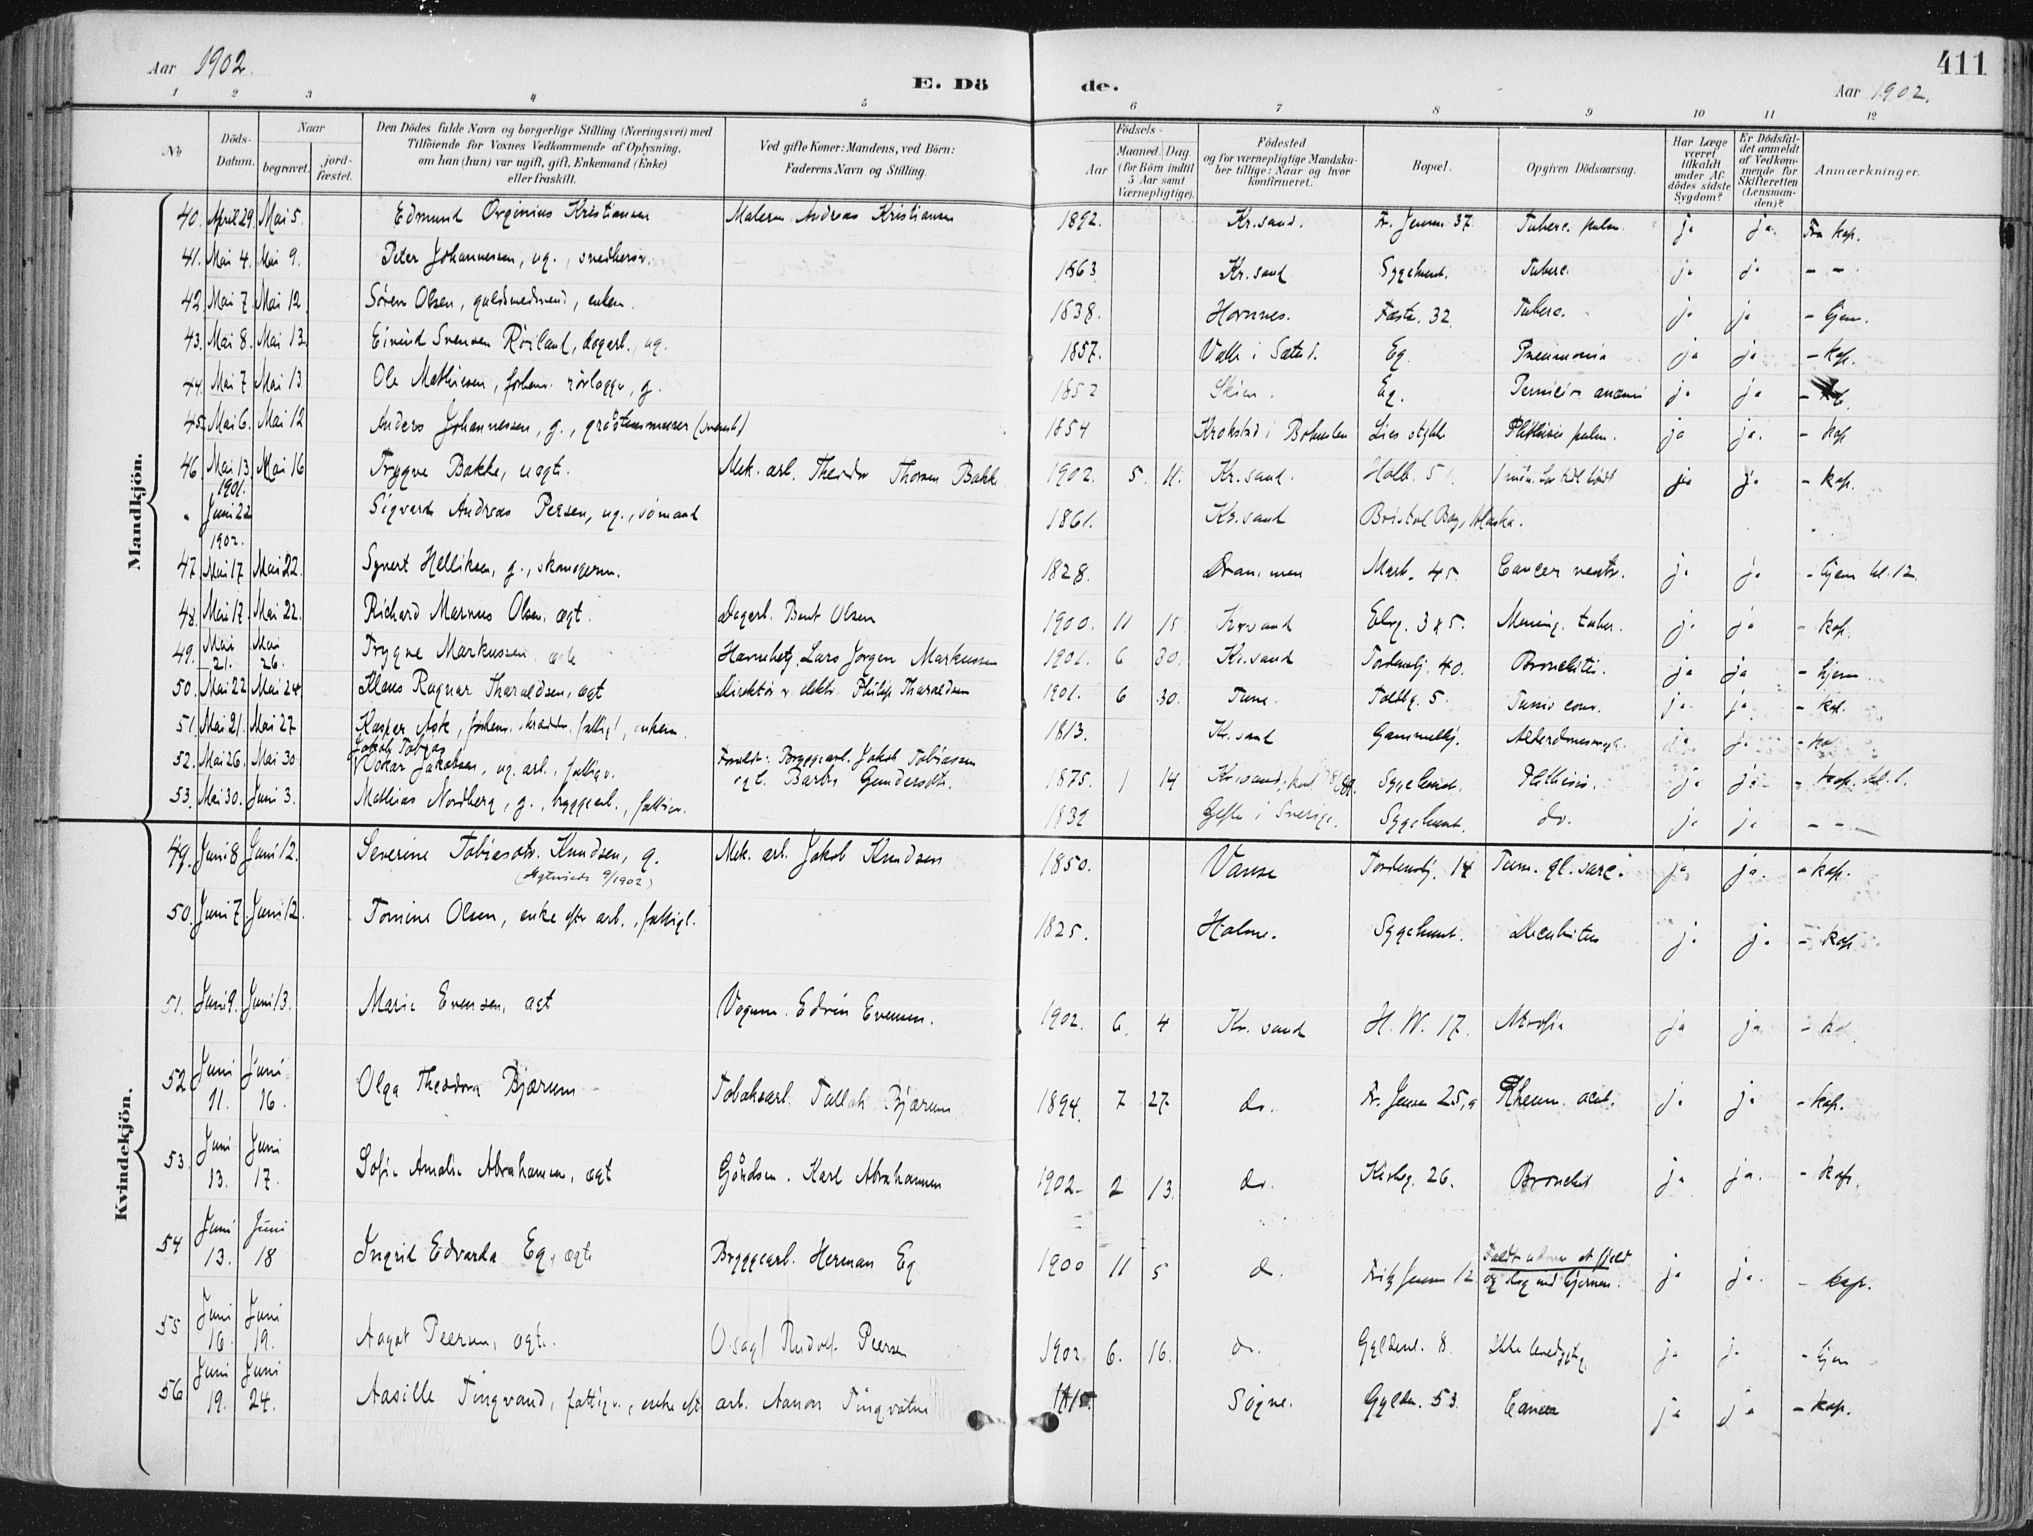 Aar 1902.
E. Dö
de.
411
Aar 1902.
1 2 3 4 5 6 7 8 9 10 11 12
No
Döds-
Datum.
Naar
begravet.
jord-
fæstet.
Den Dödes fulde Navn og borgerlige Stilling (Næringsvei) med
Tilföiende for Voxnes Vedkommende af Oplysning,
om han (hun) var ugift, gift, Enkemand (Enke)
eller fraskilt.
Ved gifte Koner: Mandens, ved Börn:
Faderens Navn og Stilling.
Födsels-
Aar
Maaned. Dag
(for Börn indtil
5 Aar samt
Værnepligtige).
Födested
og for værnepligtige Mandska-
ber tillige: Naar og hvor
konfirmeret.
Bopæl.
Opgiven Dödsaarsag.
Har Læge
været
tilkaldt
under Af-
dödes sidste
Sygdom?
Er Dödsfal-
det anmeldt
af Vedkom-
mende for
Skifteretten
(Lensman-
den)?
Anmærkninger.
Mandkjön.
40. April 29. Mai 5. Edmund Orginius Kristiansen Malerm. Andreas Kristiansen 1892. Kr.sand. Fr. Jensen 37 Tuberc. pulm. ja ja. Fra kap.
41. Mai 4. Mai 9. Peter Johannessen, ug., snedkersv. 1863 Kr.sand Sygehuset. Tuberc. ja ja - -
42. Mai 7. Mai 12 Sören Olsen, guldsmedsvend, enkem. 1838. Hornnes. Fæstn. 32. Tuberc. ja ja - hjem.
43. Mai 8. Mai 13. Eivind Svensen Röiland, dagarb., ug. 1857. Valle i Sætersd. Eg. Pneumonia ja ja - kap.
44. Mai 7 Mai 13 Ole Mathiesen, forhenv. rörlægger, g. 1852 Skien. Eg. Pernicios anæmi ja ja - kap.
45. Mai 6. Mai 12 Anders Johannessen, g., gråstensmurer (svensk) 1854 Krokstad i Bohuslen Lies stykke Phthisis pulm. ja ja. - kap
46. Mai 13 Mai 16 Trygve Bakke, uægt. Mek. arb. Theodor Thorsen Bakke 1902. 5. 11. Kr.sand. Holb. 5 1 mdn. for tidl. födt ja ja - kap.
1901.
Juni 22 Sigvard Andreas Persen, ug., sömand 1861. Kr.sand Bristol Bay, Alaska.
1902.
47. Mai 17 Mai 22. Syvert Helliksen, g., skomagerm. 1828. Drammen Mark. 45. Cancer ventr. ja ja - hjem kl. 12.
48. Mai 17. Mai 22. Richard Marnus Olsen, ægt. Dagarb. Bent Olsen 1900. 11 15 Kr.sand Elvg. 385. Mening. tuber. ja ja - kap.
49. Mai 21. Mai 26. Trygve Markussen, ægte Havnebetj. Lars Jörgen Markussen 1901. 6 30. Kr.sand Tordenskj. 40. Bronchitis. ja ja - hjem.
50. Mai 22 Mai 24 Klaus Ragnar Tharaldsen, ægt Direktör v. elektr. Philip Tharaldsen 1901. 6 30. Tune. Toldbg. 5. Tussis conv. ja. ja. - kap.
51. Mai 21. Mai 27 Kasper Ask, forhenv. skrædder, fattigl., enkem. 1813. Kr.sand Gammelhj. Alderdomssvagh. ja ja - kap
52. Mai 26. Mai 30 Jakob Tobias Oskar Jakobsen, ug. arb., fattigv. Forældr: Bryggearb. Jakob Tobiassen
og h. Barbr. Gundersdtr. 1875. 1 14 Kr.sand, Sygehuset. Phthisis. ja ja - kap. kl. 1.
53. Mai 30. Juni 3. Mathias Nordberg, g., byggearb., fattigv. 1832 Gefle i Sverige. Sygehuset. do. ja ja - -
Kvindekjön.
49. Juni 8 Juni 12. Severine Tobiasdtr. Knudsen, g. Mek. arb. Jakob Knudsen 1850. Vanse Tordenskj. 14 Tum. gl. sarc. ja ja. - kap.
50. Juni 7. Juni 12 Tomine Olsen, enke eftr arb., fattigl. 1825. Holme. Sygehuset. Decubitus ja ja. - kap
51. Juni 9. Juni 13. Marie Evensen, ægt Vognm. Edvin Evensen. 1902. 6. 4 Kr.sand H. W. 17. Atrofia ja ja - kap.
52 Juni 11. Juni 16. Olga Theodora Bjærum Tobaksarb. Tallak Bjærum 1894. 7 27. do. Fr. Jensen 25, a Rheum. acut. ja. ja - kap.
53. Juni 13. Juni 17. Sofie Amalie Abrahamsen, ægt Karl Abrahamsen 1902. 2 13. do. Kirkeg. 26. Bronchit ja ja. - kap.
54 Juni 13. Juni 18 Ingrid Edvarda Eg, ægte Bryggearb. Herman Eg 1900 11 5 do. Fritz Jensen 12 Faldt udover et fjeld
og slog ind hjernen. ja ja. - kap.
55 Juni 16. Juni 19. Aagot Peersen, ægte. Rudolf Peersen 1902 6. 16. do. Gyldenl. 8. Ikke levedygtig ja ja - hjem
56 Juni 19. Juni 24. Aasille Tingvand, fattigv., enke eftr arb. Aanon Tingvatne Sögne. Gylden. 53. Cancer ja ja - kap.